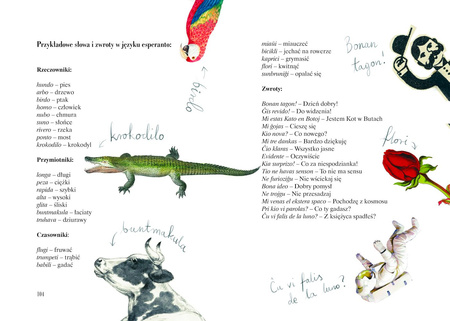 Przykładowe słowa i zwroty w języku esperanto:
Rzeczowniki:
hundo – pies
arbo – drzewo
birdo – ptak
homo – człowiek
nubo – chmura
suno – słońce
rivero – rzeka
ponto – most
krokodilo – krokodyl
Przymiotniki:
longa – długi
peza – ciężki
rapida – szybki
alta – wysoki
glita – śliski
buntmakula – łaciaty
truhava – dziurawy
Czasowniki:
flugi – fruwać
trumpeti – trąbić
babili – gadać
104
birdo
krokodilo
buntmakula
maistí – mizuczeć
bicikli – jechać na rowerze
kaprici – grymasić
flori – kwitnąć
sunbruniĝi – opalać się
Zwroty:
Bonan tagon! – Dzień dobry!
Gis revido! – Do widzenia!
Mi estas Kato en Botoj – Jestem Kot w Butach
Mi ĝojas – Cieszę się
Kio nova? – Co nowego?
Mi tre dankas – Bardzo dziękuję
Ĉio klaras – Wszystko jasne
Evidente – Oczywiście
Kia surprizo! – Co za niespodzianka!
Tio ne havas senson – To nie ma sensu
Ne furioziĝu – Nie wściekaj się
Bona ideo – Dobry pomysł
Ne troigu – Nie przesadzaj
Mi venas el ekstera spaco – Pochodzę z kosmosu
Pri kio vi parolas? – Co ty gadasz?
Ĉu vi falis de la luno? – Z księżyca spadłeś?
Bonan
tagon!
flori
Ĉu vi falis
de la luno?